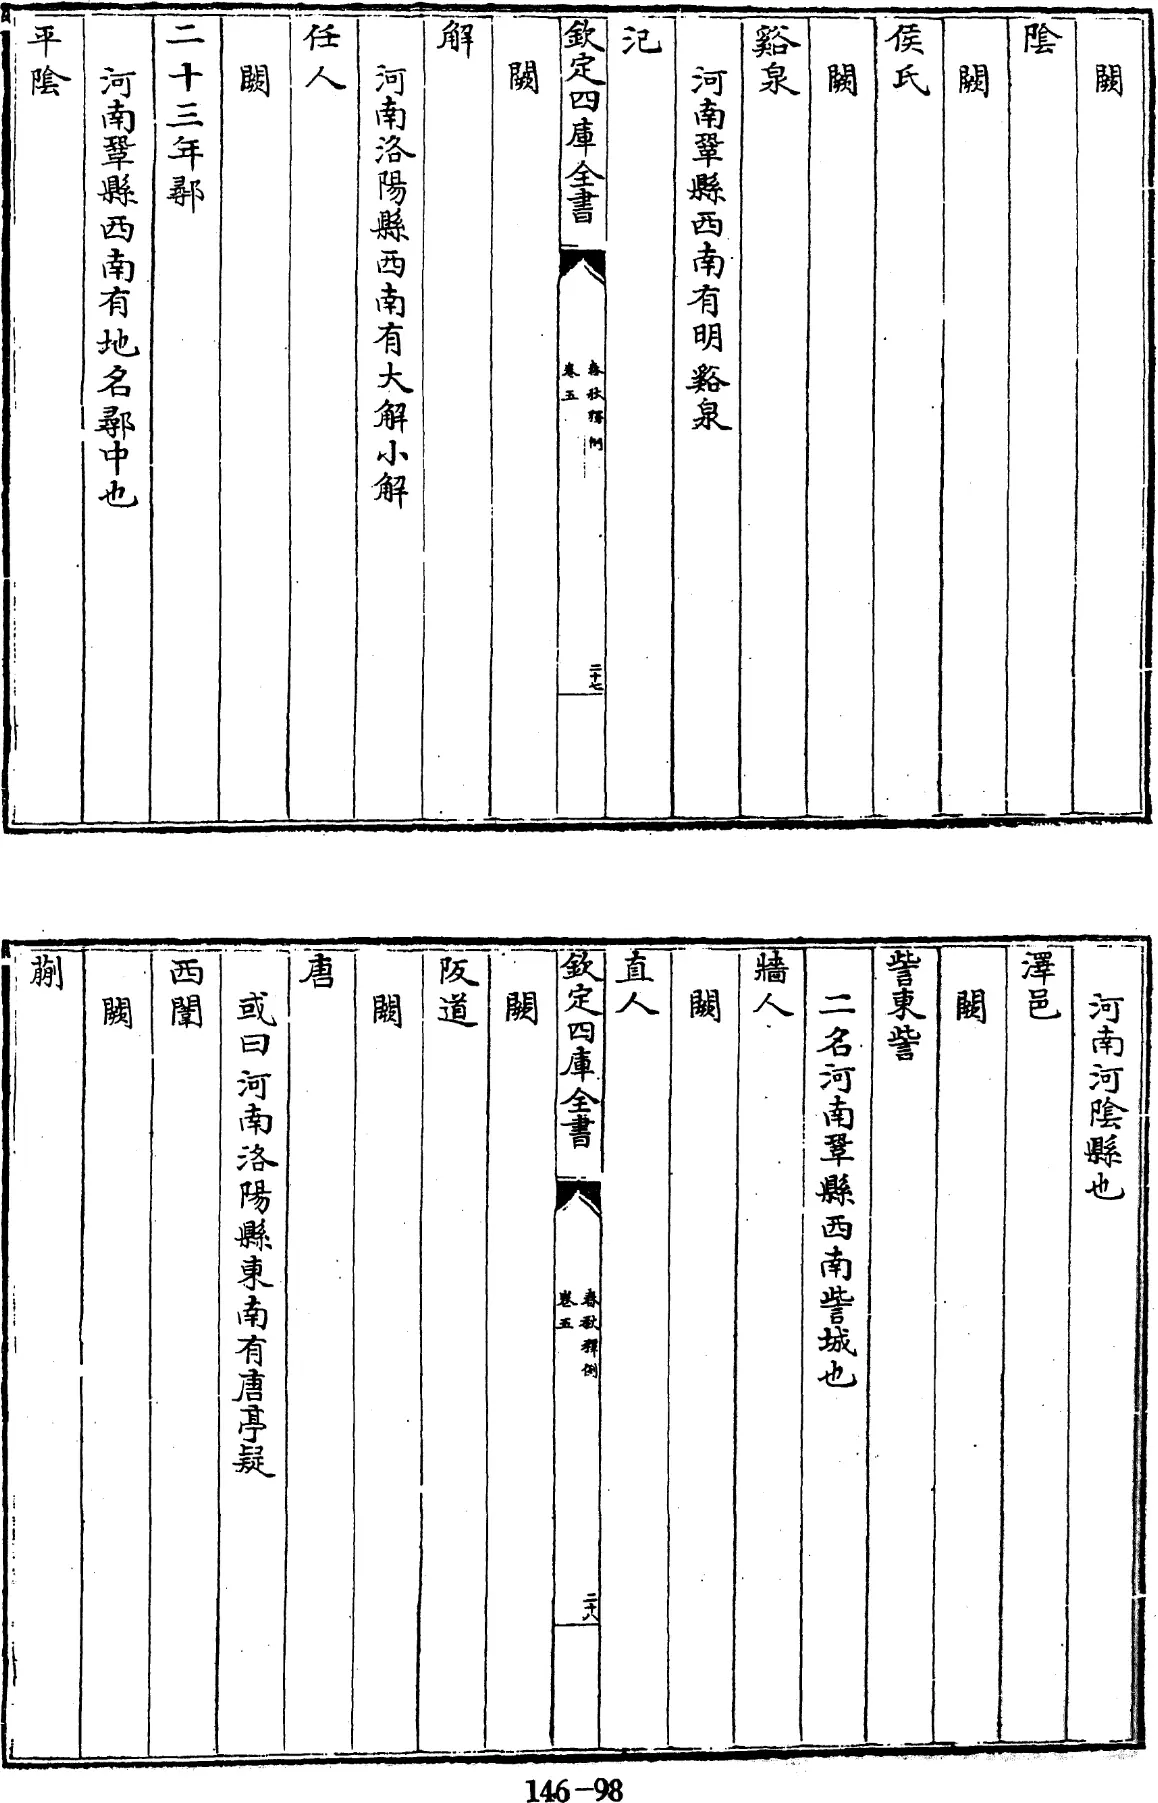 闕
陰
闕
侯氏
闕
谿泉
河南鞏縣西南有明谿泉
氾
欽定四庫全書
春秋釋例
卷五
二十七
闕
解
河南洛陽縣西南有大解小解
任人
闕
二十三年鄩
河南鞏縣西南有地名鄩中也
平陰
河南河陰縣也
澤邑
闕
訾東訾
二名河南鞏縣西南訾城也
牆人
闕
直人
欽定四庫全書
春秋釋例
卷五
二十八
闕
阪道
闕
唐
或曰河南洛陽縣東南有唐亭疑
西闈
闕
蒯
146-98